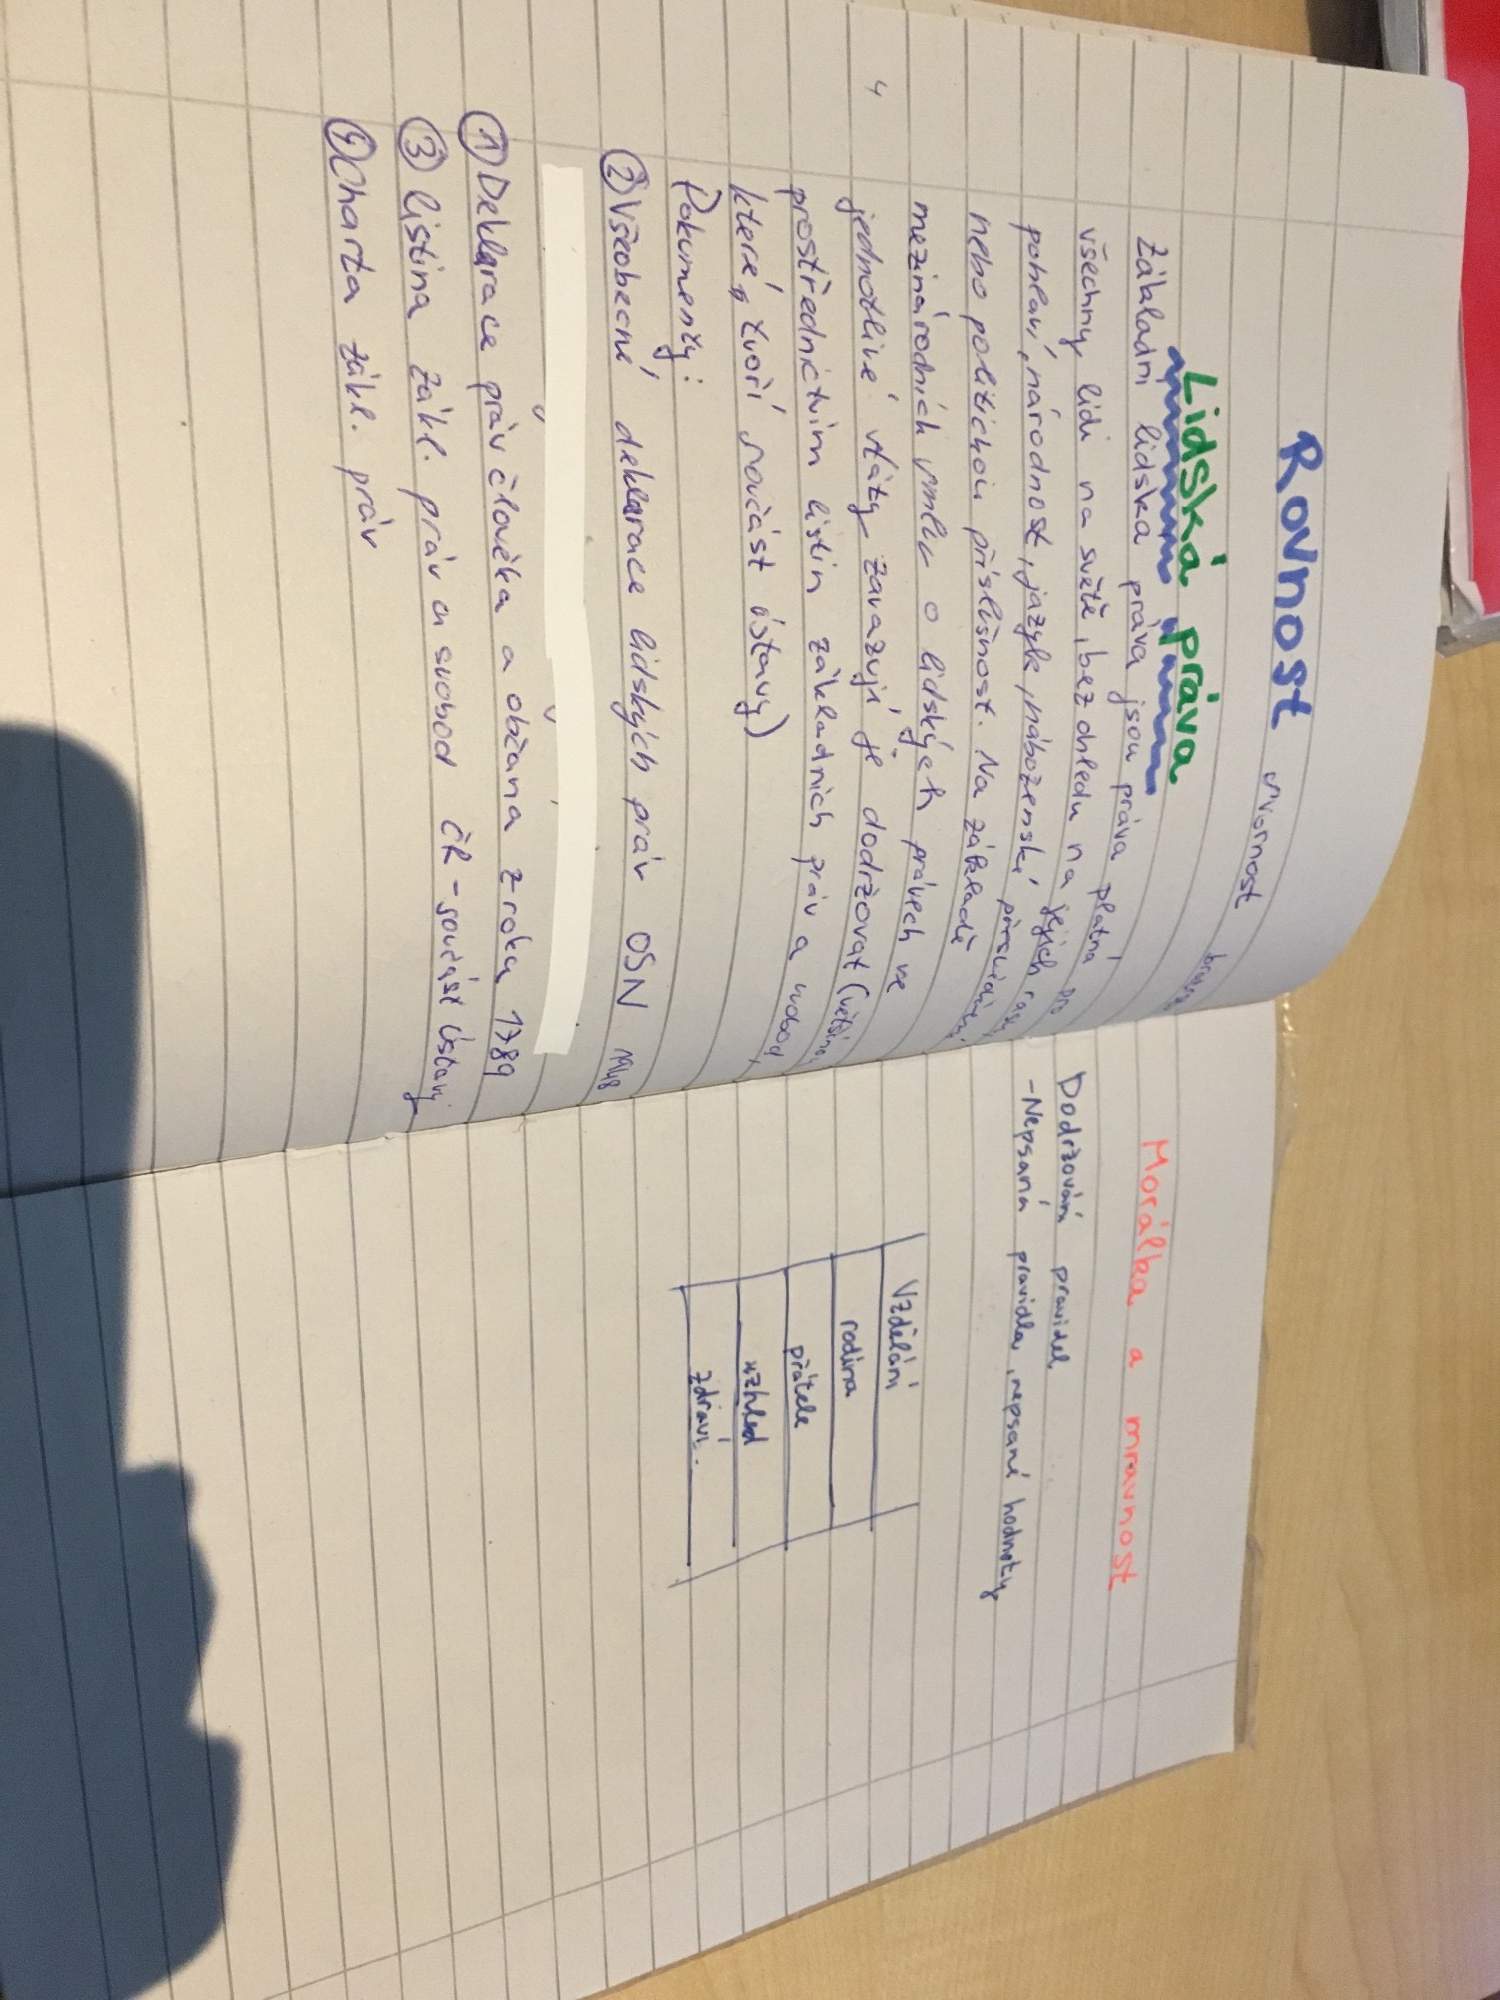 Rovnost
svornost
bratrství
Lidská práva
Základní lidská práva jsou práva platná pro
všechny lidi na světě, bez ohledu na jejich rasu,
pohlaví, národnost, jazyk, náboženské přesvědčení
nebo politickou příslušnost. Na základě
mezinárodních smluv o lidských právech se
4
jednotlivé státy zavazují je dodržovat (většinou
prostřednictvím listin základních práv a svobod,
které tvoří součást ústavy)
Dokumenty:
② Všeobecné deklarace lidských práv OSN 1948
① Deklarace práv člověka a občana z roku 1789
③ listina zákl. práv a svobod ČR - součást ústavy
④ Charta zákl. práv
Morálka a mravnost
Dodržování pravidel
- Nepsaná pravidla, nepsané hodnoty
Vzdělání
rodina
přátele
vzhled
zdraví.